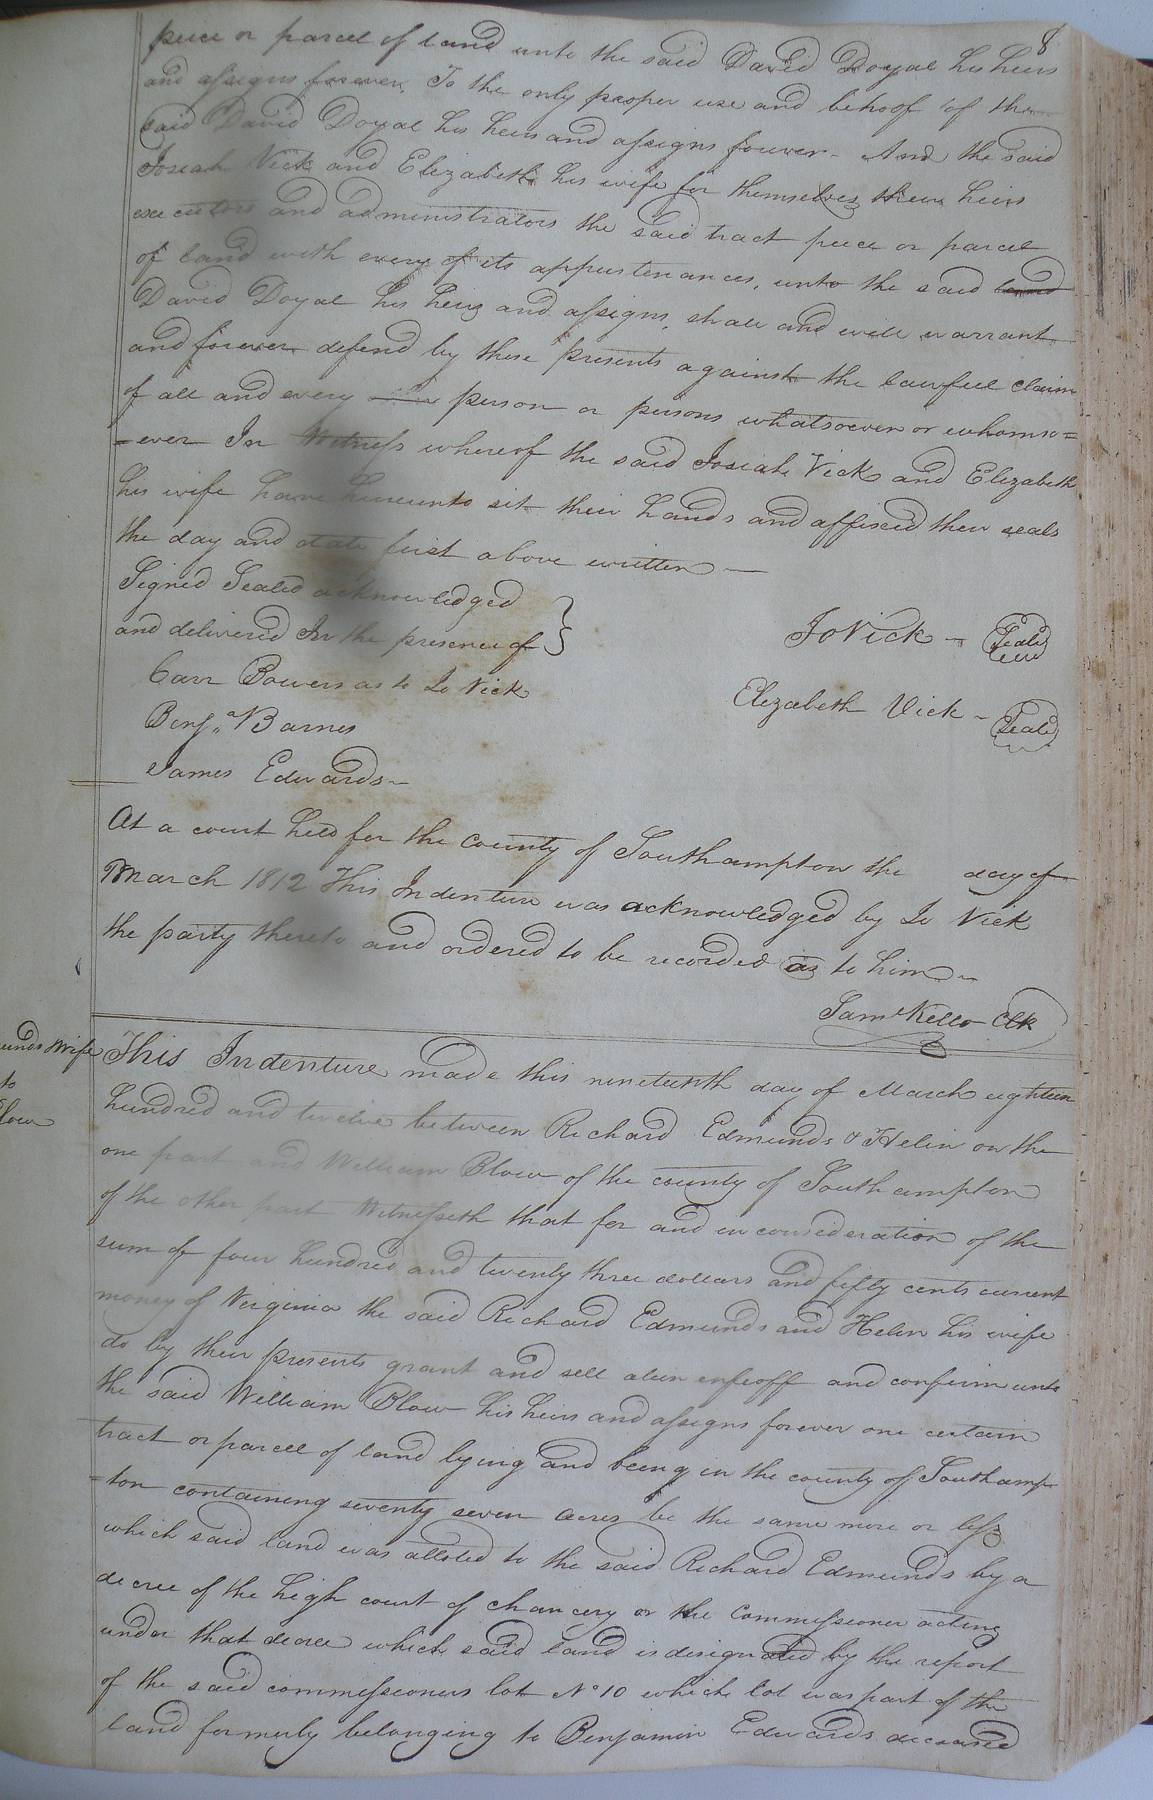 8
piece or parcel of land unto the said David Doyal his heirs
and assigns forever. To the only proper use and behoof of the
said David Doyal his heirs and assigns forever - And the said
Josiah Vick and Elizabeth his wife for themselves their heirs
executors and administrators the said tract piece or parcel
of land with every of its appurtenances, unto the said land
David Doyal his heirs and assigns, shall and will warrant
and forever defend by these presents against the lawful claim
of all and every person or persons whatsoever or whomso=
=ever In Witness whereof the said Josiah Vick and Elizabeth
his wife have hereunto sit their hands and affixed their seals
the day and date first above written —
Signed Sealed acknowledged
and delivered In the presence of
Jo Vick - Seal
Carr Bowers as to Jo Vick
Elizabeth Vick - Seal
Benja. Barnes
James Edwards -
At a court held for the county of Southampton the day of
March 1812 This Indenture was acknowledged by Jo Vick
the party thereto and ordered to be recorded as to him -
Saml Kello Clk
unds Wife
to
Blow
This Indenture made this nineteenth day of March eighteen
hundred and twelve between Richard Edmunds & Helin on the
one part and William Blow of the county of Southampton
of the other part Witnesseth that for and in consideration of the
sum of four hundred and twenty three dollars and fifty cents current
money of Virginia the said Richard Edmunds and Helen his wife
do by their presents grant and sell alien enfeoff and confirm unto
the said William Blow his heirs and assigns forever one certain
tract or parcel of land lying and being in the county of Southamp
=ton containing seventy seven acres be the same more or less
which said land was alloted to the said Richard Edmunds by a
decree of the high court of chancery or the Commissioner acting
under that decree which said land is designated by the report
of the said commissioners lot No 10 which lot was part of the
land formerly belonging to Benjamin Edwards deceased